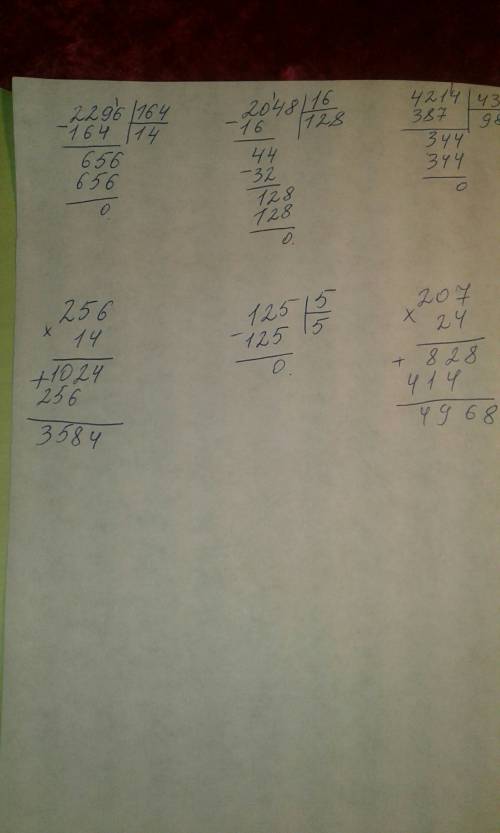 2296 164
-164 14
656
656
0.
2048 16
-16 128
44
-32
128
128
0.
4214 43
387 98
344
344
0
256
x 14
+1024
256
3584
125 5
-125 5
0.
207
x 24
+ 828
414
4968